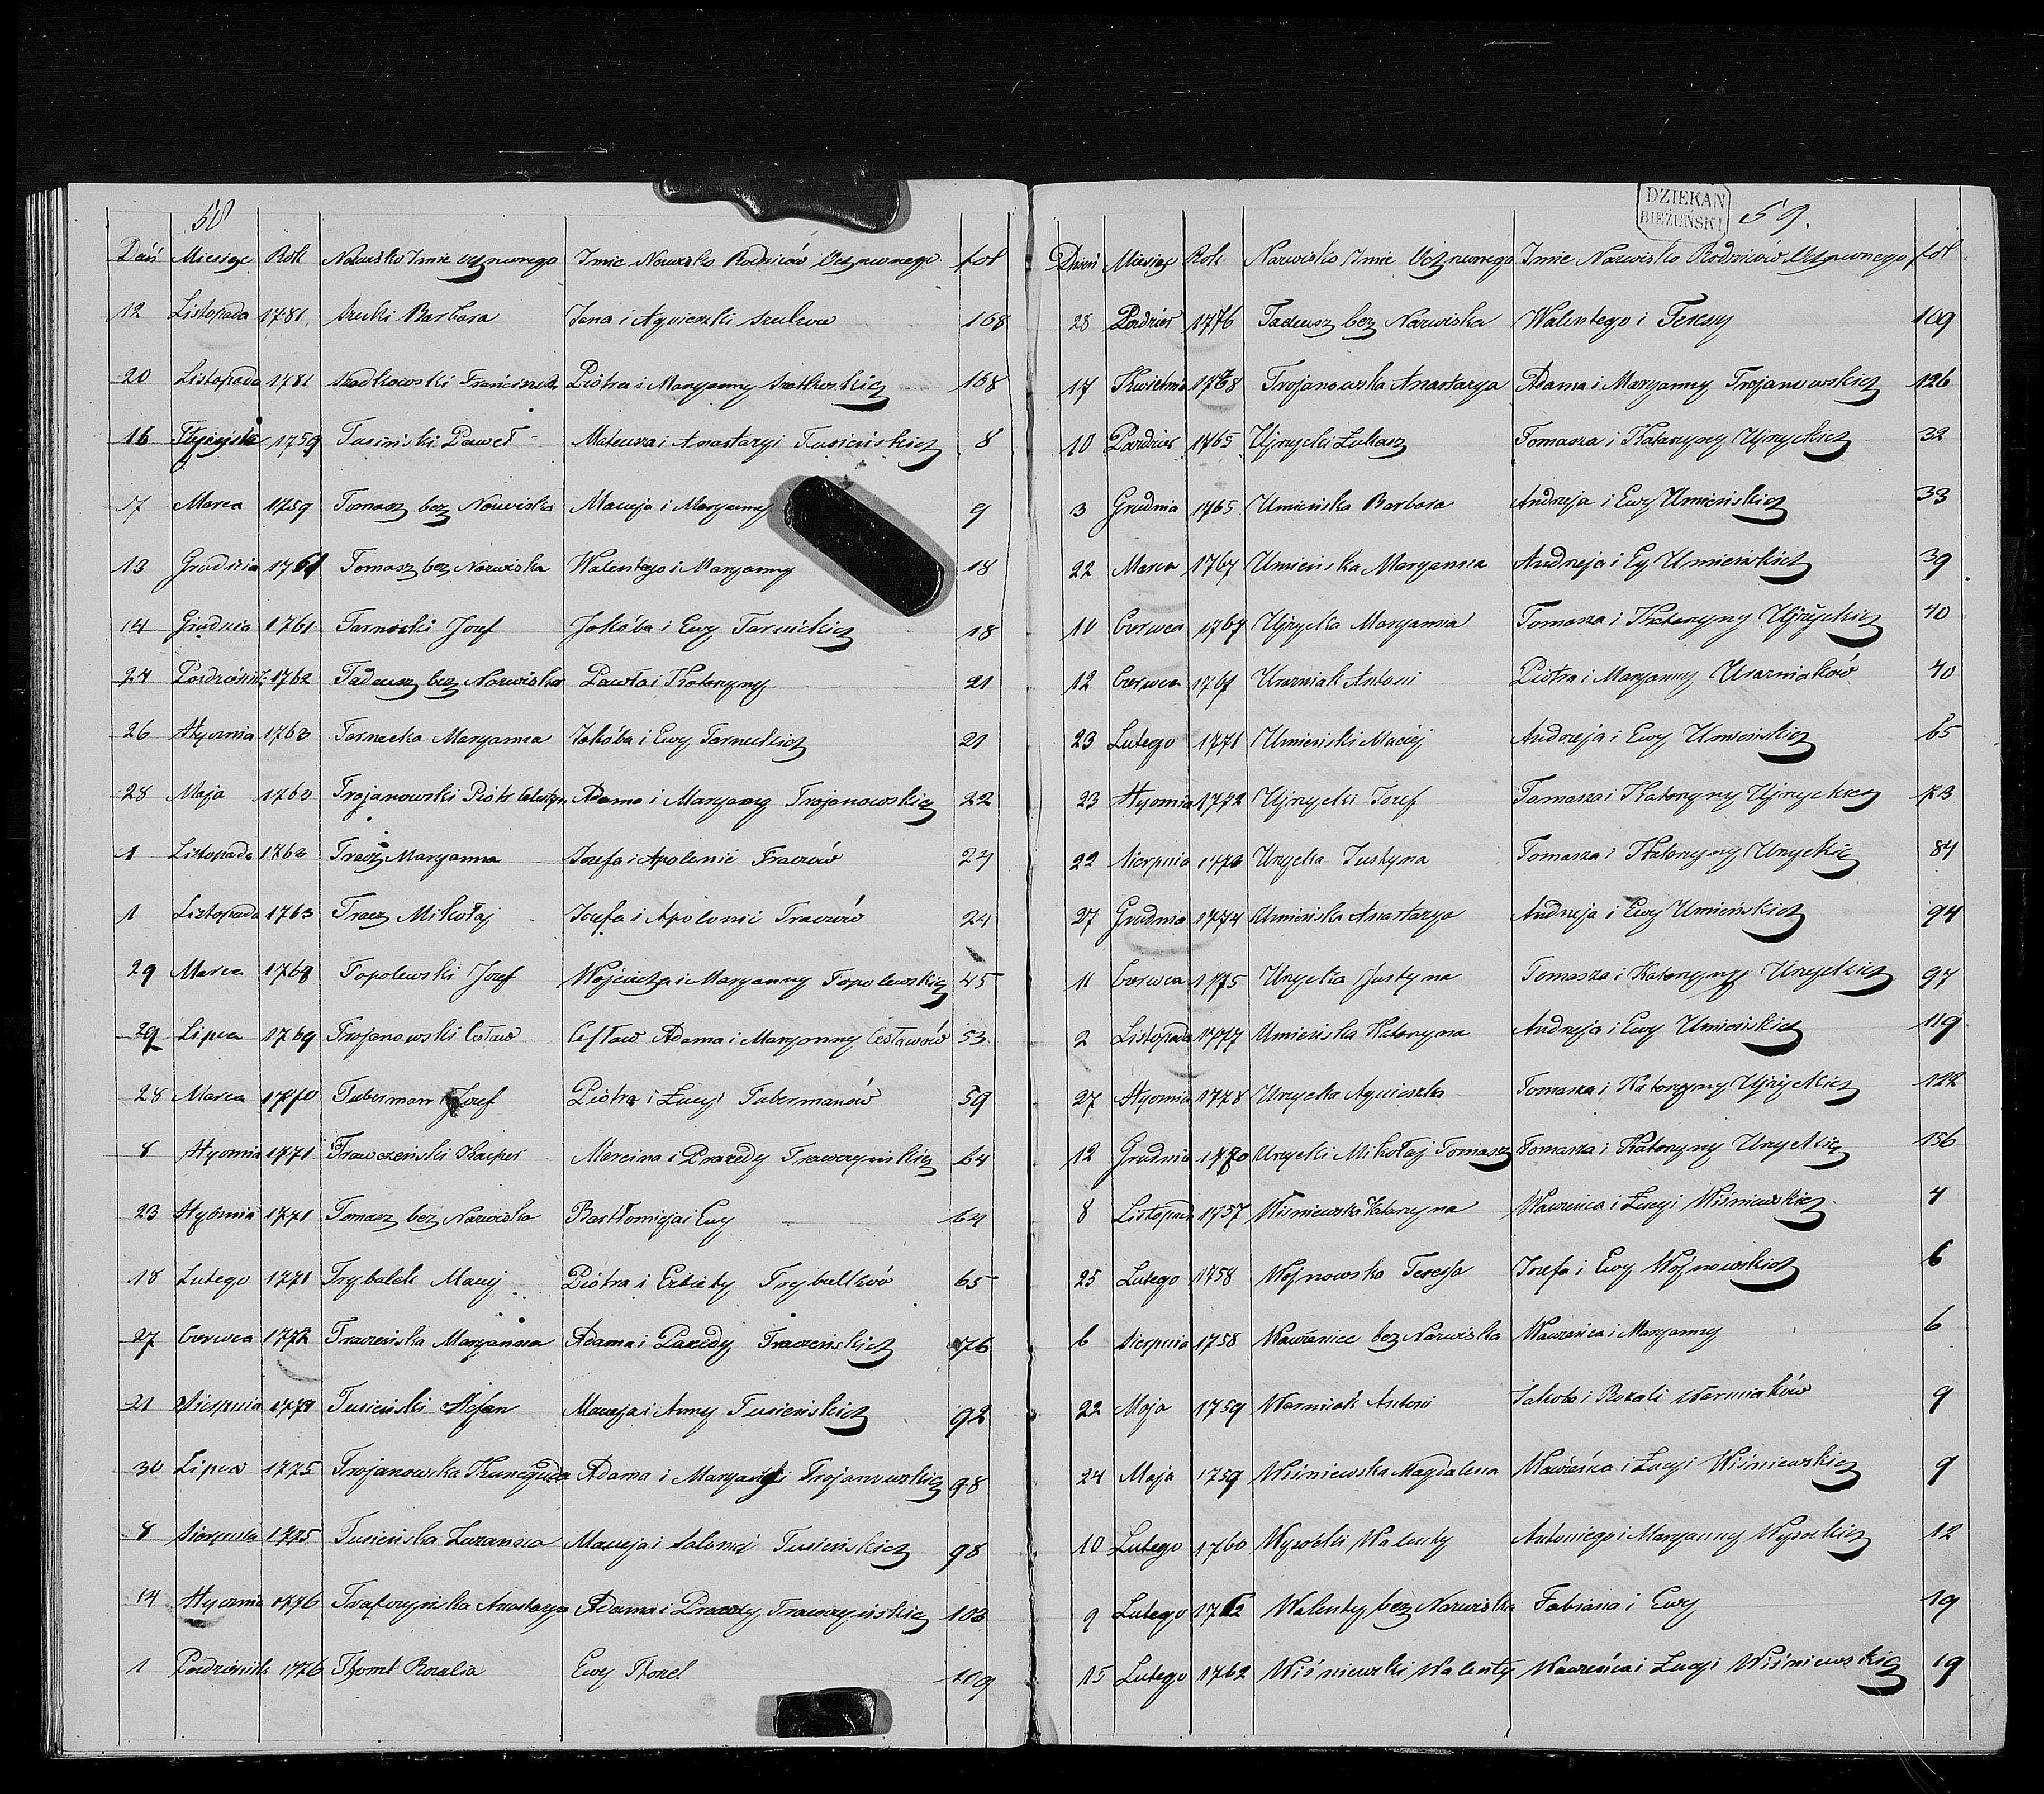 58
Dzień Miesiąc Rok Nazwisko Imie Uczniowego Imie Nazwisko Rodziców fol
12 Listopada 1781 Szulki Barbara Jana i Agnieszki Szulców 168
20 Listopada 1781 Szadkowski Franciszek Piotra i Maryanny 168
16 1759 Tusiński Paweł Mateusza i Anastazyi Tusieńskich 8
17 Marca 1759 Tomasz bez Nazwiska Macieja i Maryanny 9
13 Grudnia 1761 Tomasz bez Nazwiska Walentego i Maryanny 18
14 Grudnia 1761 Tarnicki Jozef Jakóba i Ewy Tarnickich 18
24 Pazdziernik 1762 Tadeusz bez Nazwiska Pawła i Katarzyny 21
26 Stycznia 1763 Tarnecka Maryanna Jakóba i Ewy Tarneckich 21
28 Maja 1763 Trojanowski Piotr Celestyn Adama i Maryanny Trojanowskich 22
1 Listopada 1763 Tracz Maryanna Jozefa i Apolonii Traczów 24
1 Listopada 1763 Tracz Mikołaj Jozefa i Apolonii Traczów 24
29 Marca 1768 Topolewski Jozef Wojciecha i Maryanny Topolewskich 45
29 Lipca 1769 Trojanowski Cesław Cesław Adama i Maryanny Cesławów 53
28 Marca 1770 Tuberman Jozef Piotra i Łucyi Tubermanów 59
8 Stycznia 1771 Trawczeński Kacper Marcina i Praxedy Trawczyńskich 64
23 Stycznia 1771 Tomasz bez Nazwiska Bartłomieja i Ewy 64
18 Lutego 1771 Trybulek Maciej Piotra i Elżbiety Trybulków 65
27 Czerwca 1772 Trawzeńska Maryanna Adama i Paxedy Trawzeńskich 76
21 Sierpnia 1774 Tusieński Stefan Macieja i Anny Tusieńskich 92
30 Lipca 1775 Trojanowska Kunegunda Adama i Maryanny Trojanowskich 98
8 Sierpnia 1775 Tusieńska Zuzanna Macieja i Salomei Tusieńskich 98
14 Stycznia 1776 Trafczyńska Anastazya Adama i Praxedy Trawczyńskich 103
1 Pazdziernik 1776 Tkoncl Rozalia Ewy 109
DZIEKAN
BIEŻUŃSKI
59.
Dzień Miesiąc Rok Nazwisko Imie Imie Nazwisko Rodziców fol
28 Pazdzier 1776 Tadeusz bez Nazwiska Walentego i Teressy 109
17 Kwietnia 1778 Trojanowska Anastazya Adama i Maryanny Trojanowskich 126
10 Pazdzier 1765 Ujrzycki Łukasz Tomasza i Katarzyny Ujrzyckich 32
3 Grudnia 1765 Umieńska Barbara Andrzeja i Ewy Umieńskich 33
22 Marca 1767 Umieńska Maryanna Andrzeja i Ewy Umieńskich 39
10 Czerwca 1767 Ujrzycka Maryanna Tomasza i Katarzyny Ujrzyckich 40
12 Czerwca 1767 Urazniak Antoni Piotra i Maryanny Urazniaków 40
23 Lutego 1771 Umieński Maciej Andrzeja i Ewy Umieńskich 65
23 Stycznia 1772 Ujrzycki Jozef Tomasza i Katarzyny Ujrzyckich 73
22 Sierpnia 1773 Urzycka Justyna Tomasza i Katarzyny Urzyckich 84
27 Grudnia 1774 Umieńska Anastazya Andrzeja i Ewy Umieńskich 94
11 Czerwca 1775 Urzycka Justyna Tomasza i Katarzyny Urzyckich 97
2 Listopada 1777 Umieńska Katarzyna Andrzeja i Ewy Umieńskich 119
27 Stycznia 1778 Urzycka Agnieszka Tomasza i Katarzyny Ujrzyckich 122
12 Grudnia 1780 Urzycki Mikołaj Tomasz Tomasza i Katarzyny Urzyckich 156
8 Listopada 1757 Wiśniewska Katarzyna Wawrzeńca i Łucyi Wiśniewskich 4
25 Lutego 1758 Wojnowska Teressa Jozefa i Ewy Wojnowskich 6
6 Sierpnia 1758 Wawrzeniec bez Nazwiska Wawrzeńca i Maryanny 6
22 Maja 1759 Warniak Antoni Jakoba i Rozali Warniaków 9
24 Maja 1759 Wiśniewska Magdalena Wawrzeńca i Łucyi Wiśniewskich 9
10 Lutego 1760 Wysocki Walenty Antoniego i Maryanny Wysockich 12
9 Lutego 1762 Walenty bez Nazwiska Fabiana i Ewy 19
15 Lutego 1762 Wiśniewski Walenty Wawrzeńca i Łucyi Wiśniewskich 19